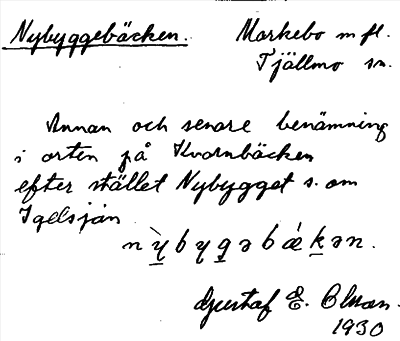 Nybyggebäcken. Markebo m fl.
Tjällmo sn.
Annan och senare benämning
i orten på Kvarnbäcken
efter stället Nybygget s. om
Igelsjön
nỳbygəbákən.
Gustaf E. Olsson.
1930